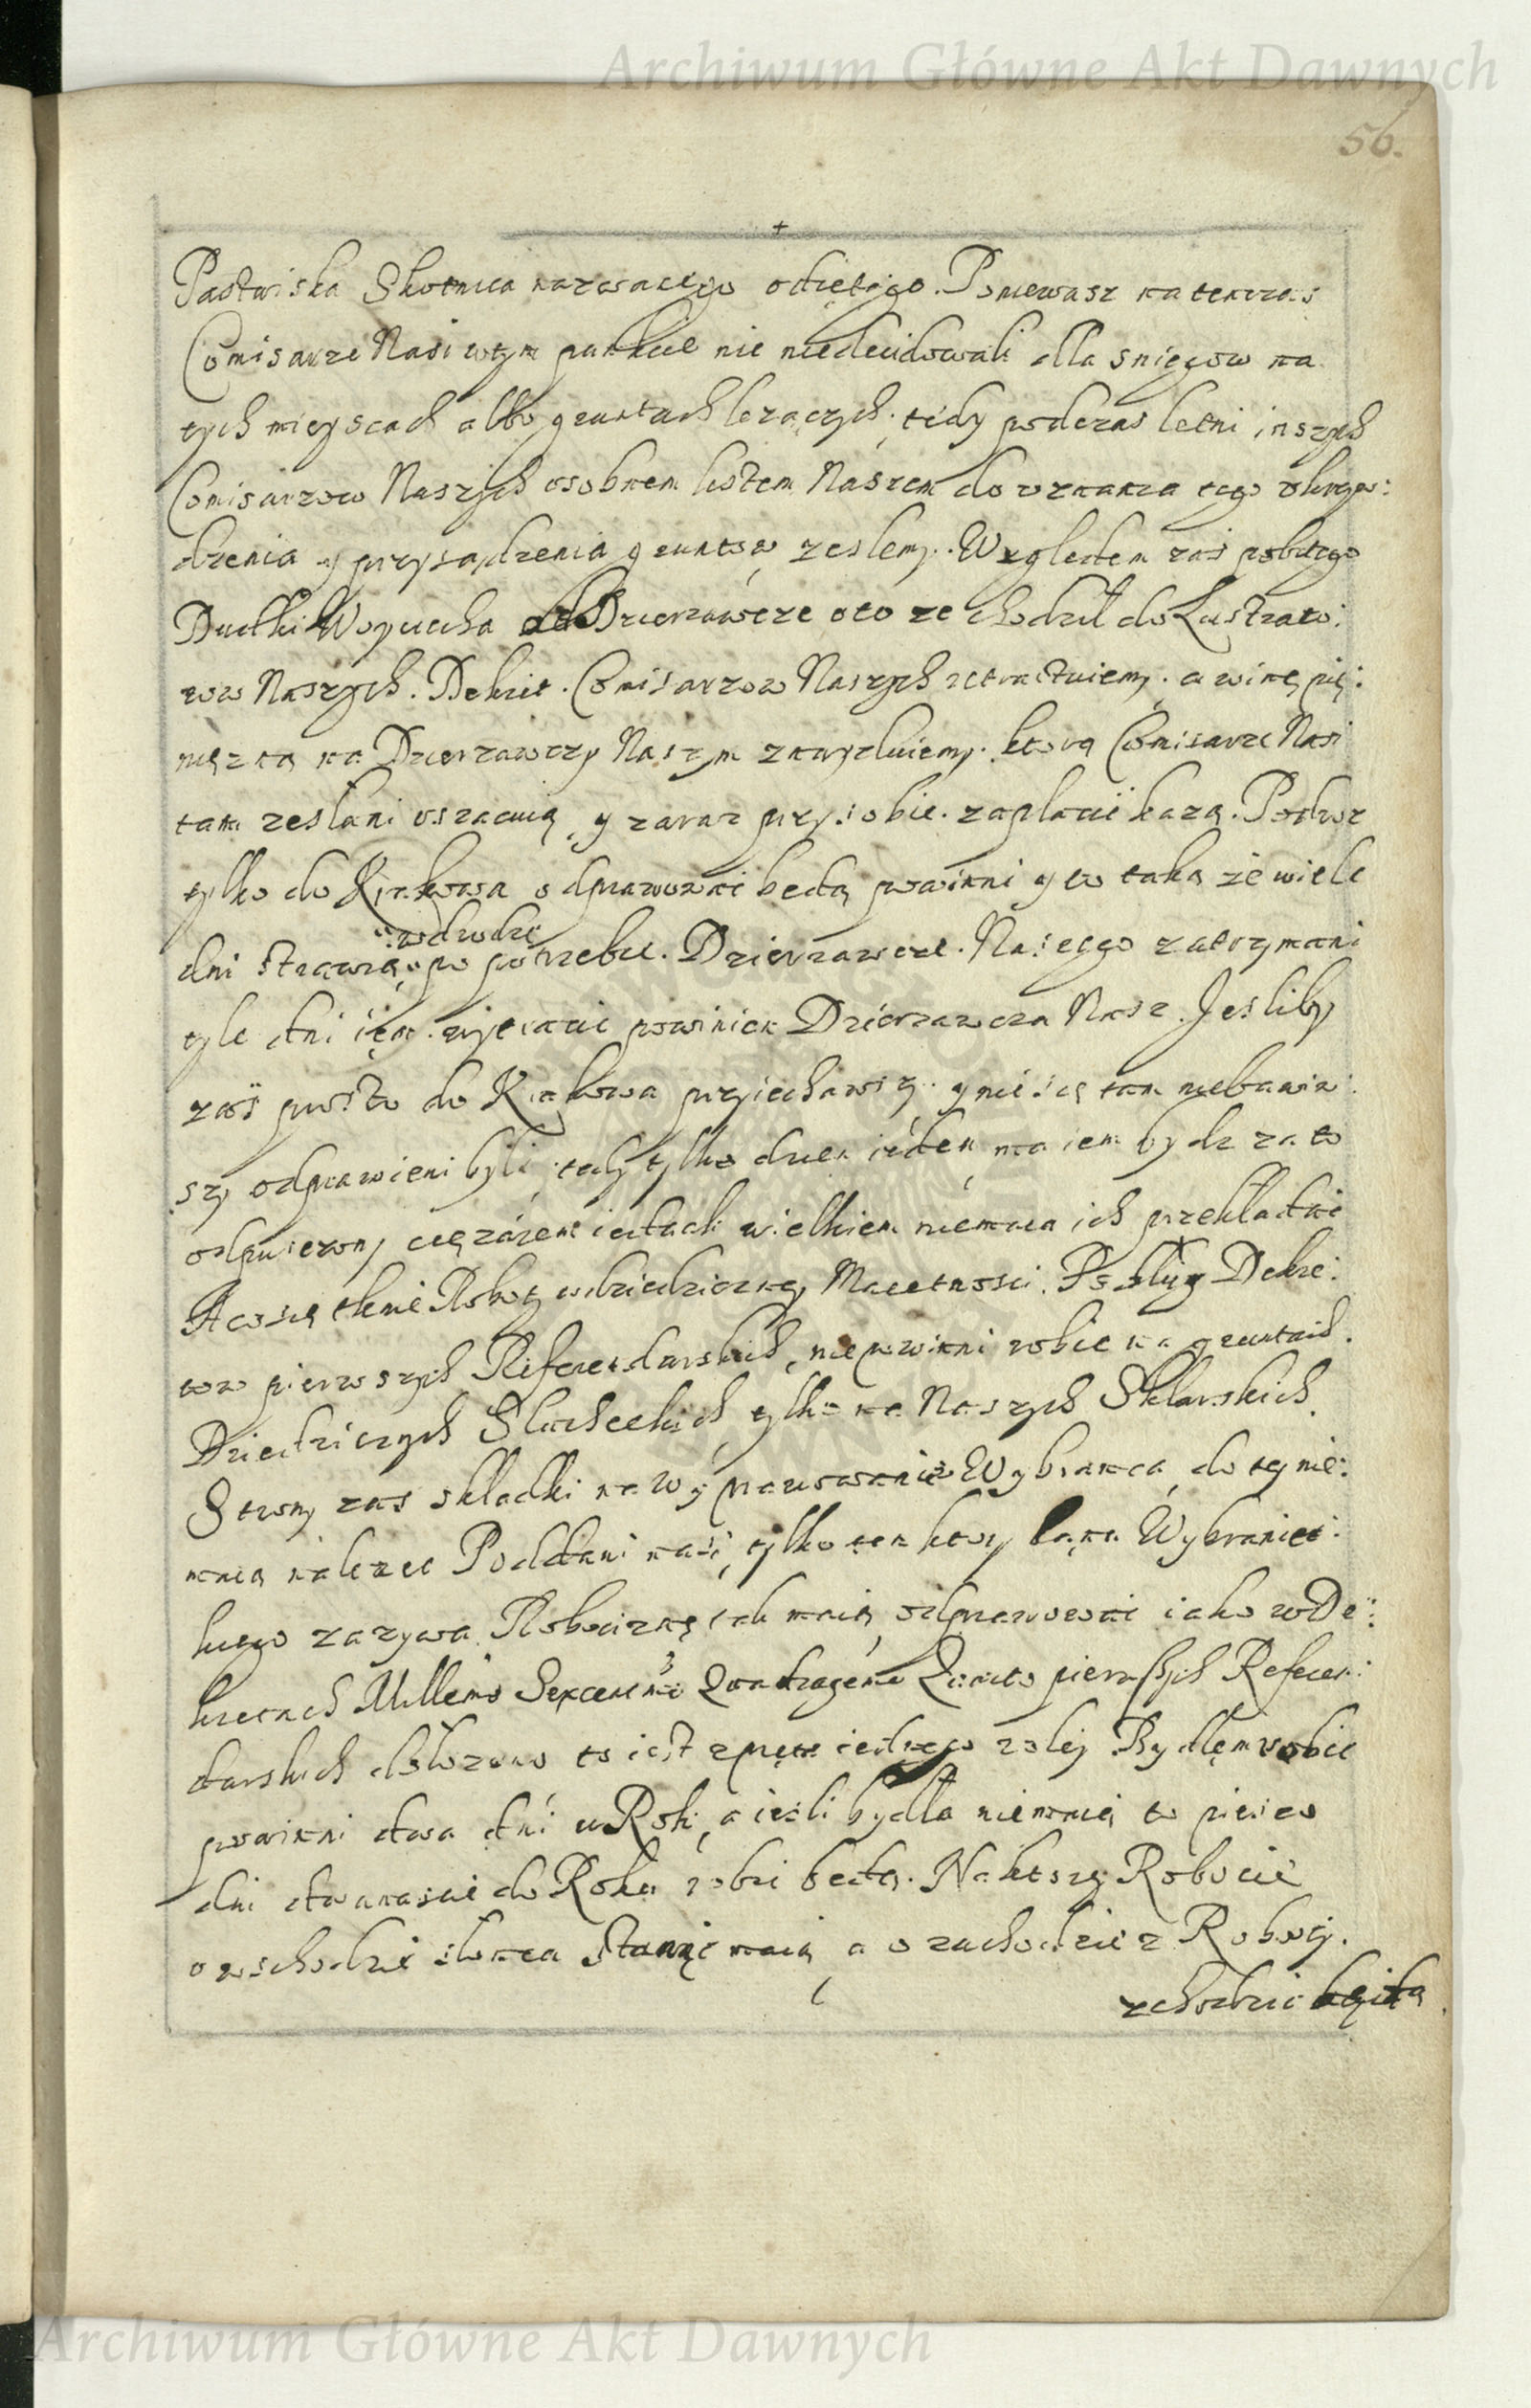 Archiwum Główne Akt Dawnych
56.
Pastwiska Skotnica nazwanego odiętego. Poniewasz natenczas
Comisarze Nasi wtym punkcie nic niedecidowali dla sniegow na
tych mieyscach albo gruntach lezączych, tedy podczas letni inszych
Comisarzow Naszych osobnem listem Naszem do uznania tego
dzenia y przysądzenia gruntow zeslemy. Względem zas pobitego
Dudki Woyciecha od Dzierzawcze oto ze chodził do Lustrato:
row Naszych. Dekret. Comisarzow Naszych retractuiemy. a winę pię:
niężną na Dzierzawczy Naszym znayduiemy. ktorą Comisarze Nasi
tam zesłani oszacuią y zaraz przy sobie. zapłacić każą. Podroz
tylko do Krakowa odprawować będą powinni y to taką że wiele
wdrodze
dni strawią po potrzebie. Dzierzawcze. Naszego zatrzymani
tyle dni iem wytrącić powinien Dzierzawcza Nasz. Jesliby
zaś prosto do Krakowa przyiechawszy. y nie się tam niebawiw:
szy odprawieni byli, tedy tylko dzien ieden ma iem bydz za to
odpuszczony ciężarem iednak wielkiem niemaią ich przekładać
A co się tknie Roboty wdziedziczney Maiętnosci. Podług Dekre:
tow pierwszych Referendarskich, niepowinni robic na gruntach.
Dziedzicznych Slacheckich, tylko na Naszych Sklarskich.
Strony zas składki na Wyprawowanie Wybranca, do tey nie:
maią nalezec Poddani nasi, tylko ten ktory Łanu Wybraniec:
kiego zazywa. Robociznę tak maią odprawować iako w De:
kretach Millemo Sexcentmo Quadragemo Quarto pierwszych Referen:
darskich dołozono to iest z pręta iednego rolej Bydlem robic
powinni dwa dni w Rok, a iesli bydła niemaią to pieszo
dni dwanascie do Roku robic będą. Naktorey Robocie
o wschodzie słonca stanąć maią a o zachodzie z Roboty.
zchodzic będą
Archiwum Główne Akt Dawnych